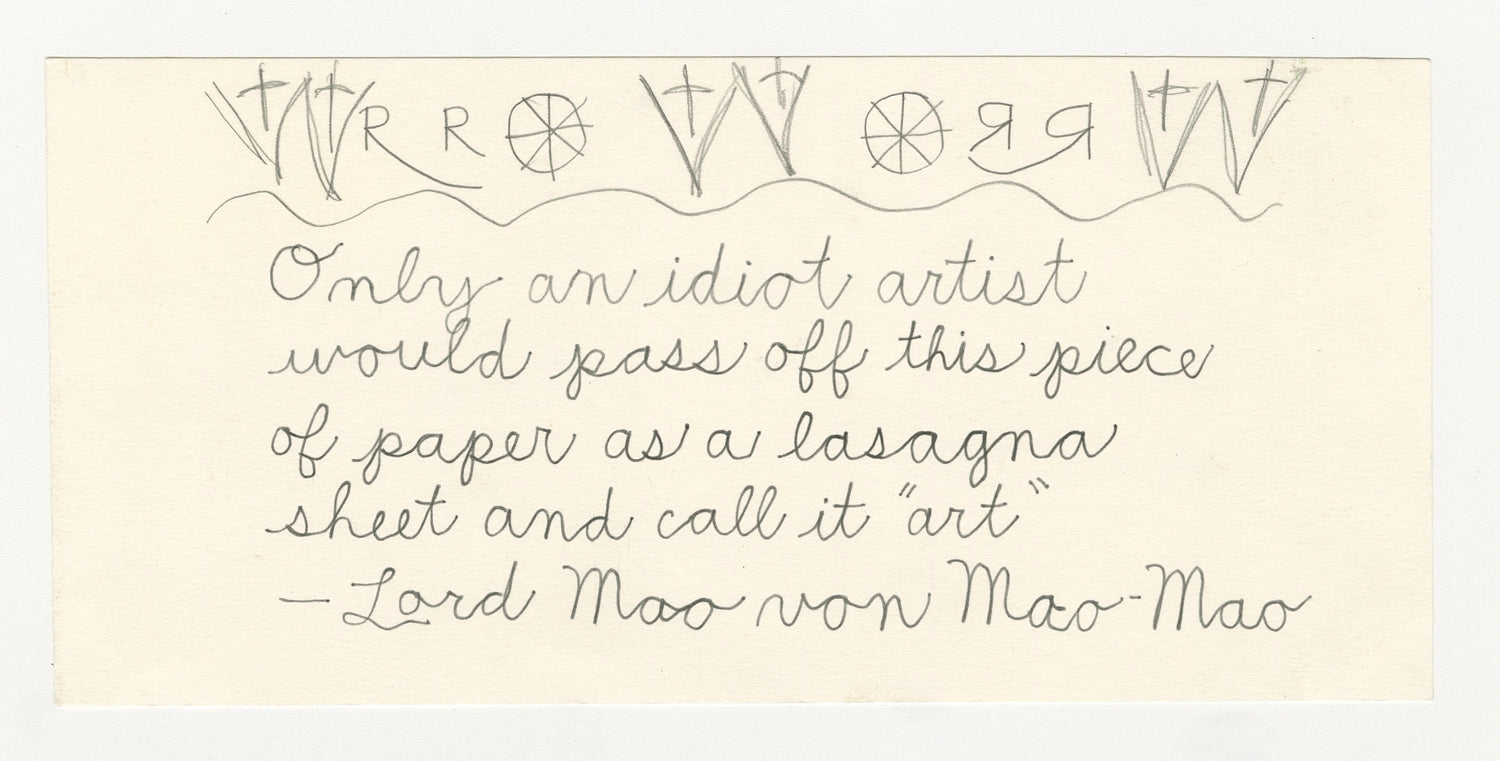 WRRO W ORRW
Only an idiot artist
would pass off this piece
of paper as a lasagna
sheet and call it "art"
—Lord Mao von Mao-Mao